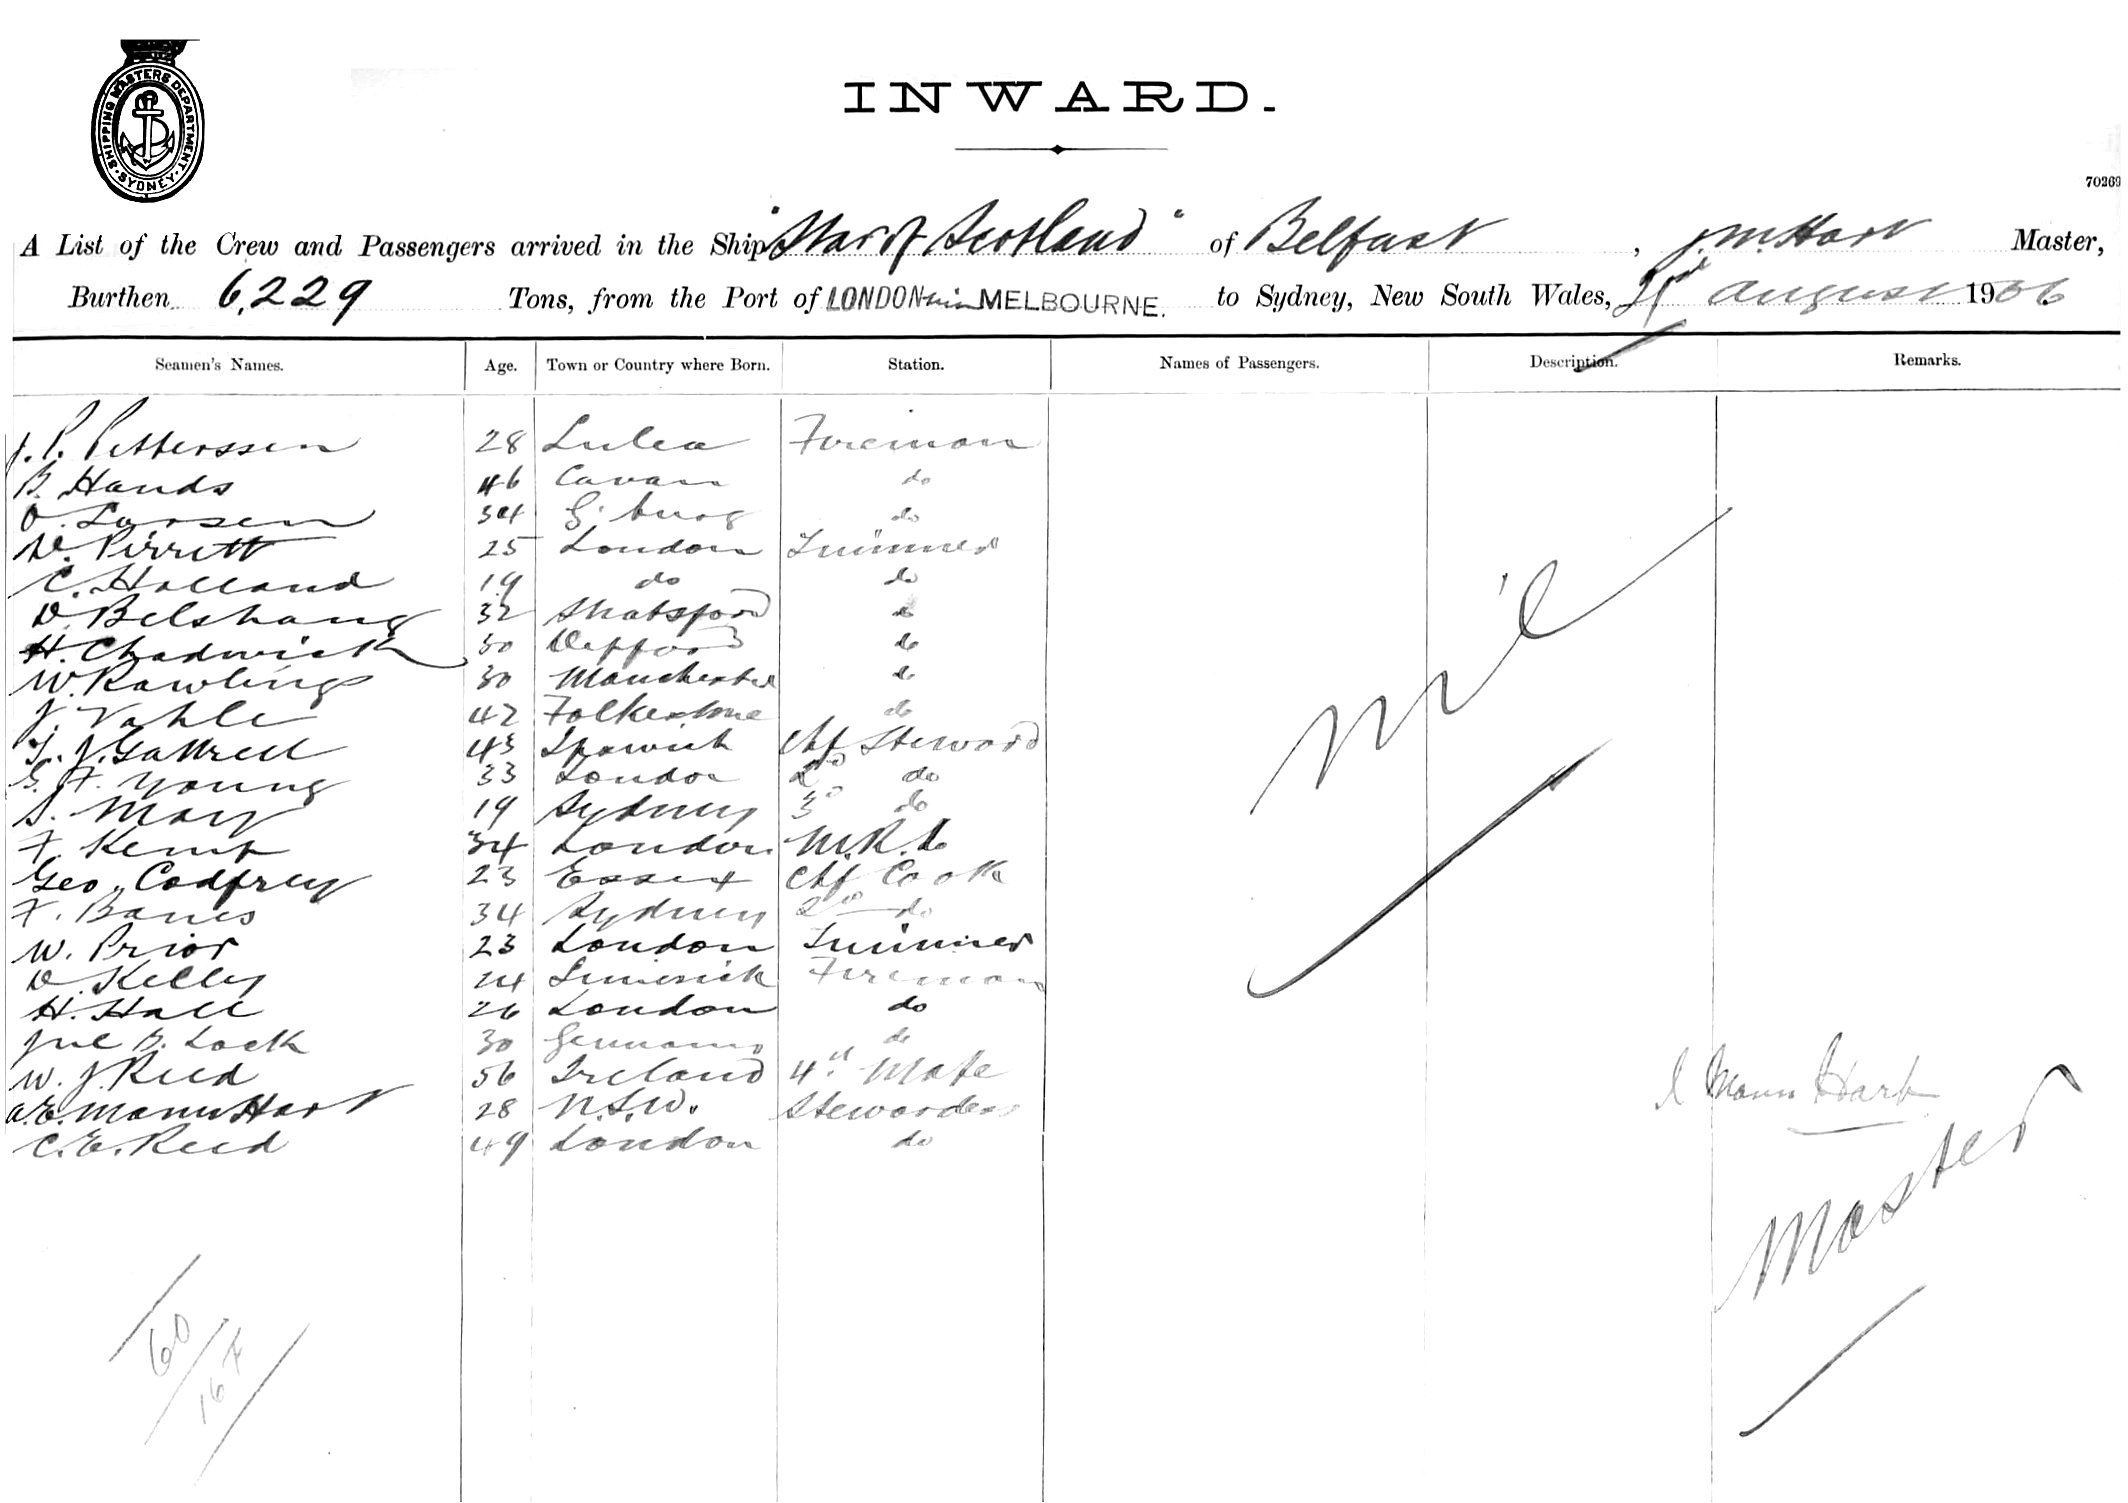 SHIPPING MASTERS DEPARTMENT · SYDNEY ·
INWARD.
70269
A List of the Crew and Passengers arrived in the Ship "Star of Scotland" of Belfast, J. M. Hart Master,
Burthen 6,229 Tons, from the Port of LONDON via MELBOURNE. to Sydney, New South Wales, August 1906
Seamen's Names. Age. Town or Country where Born. Station. Names of Passengers. Description. Remarks.
J. P. Pitterssen 28 Lulea Fireman
B. Hands 46 Cavan do
O. Larsen 34 G. burg do
W. Pirrett 25 London Trimmer
C. Holland 19 do do
D. Belshaw 32 do
H. Chadwick 30 do
W. Rawlings 30 Manchester do
J. Vahle 42 Folkestone do
T. J. Gattrell 43 Ipswich Chf Steward
G. F. Young 33 London 2º do
S. May 19 Sydney 3º do
F. Kemp 34 London M.R. do
Geo. Codfrey 23 Essex Chf Cook
F. Banes 34 Sydney 2º do
W. Prior 23 London Trimmer
D. Kelly 24 Limerick Fireman
H. Hall 26 London do
B. Lock 30 Germany do
W. J. Reed 56 Ireland 4th Mate
A. E. Mann Hart 28 N.S.W. Stewardess
C. E. Reed 49 London do
nil
J Mann Hart
Master
60
16 F